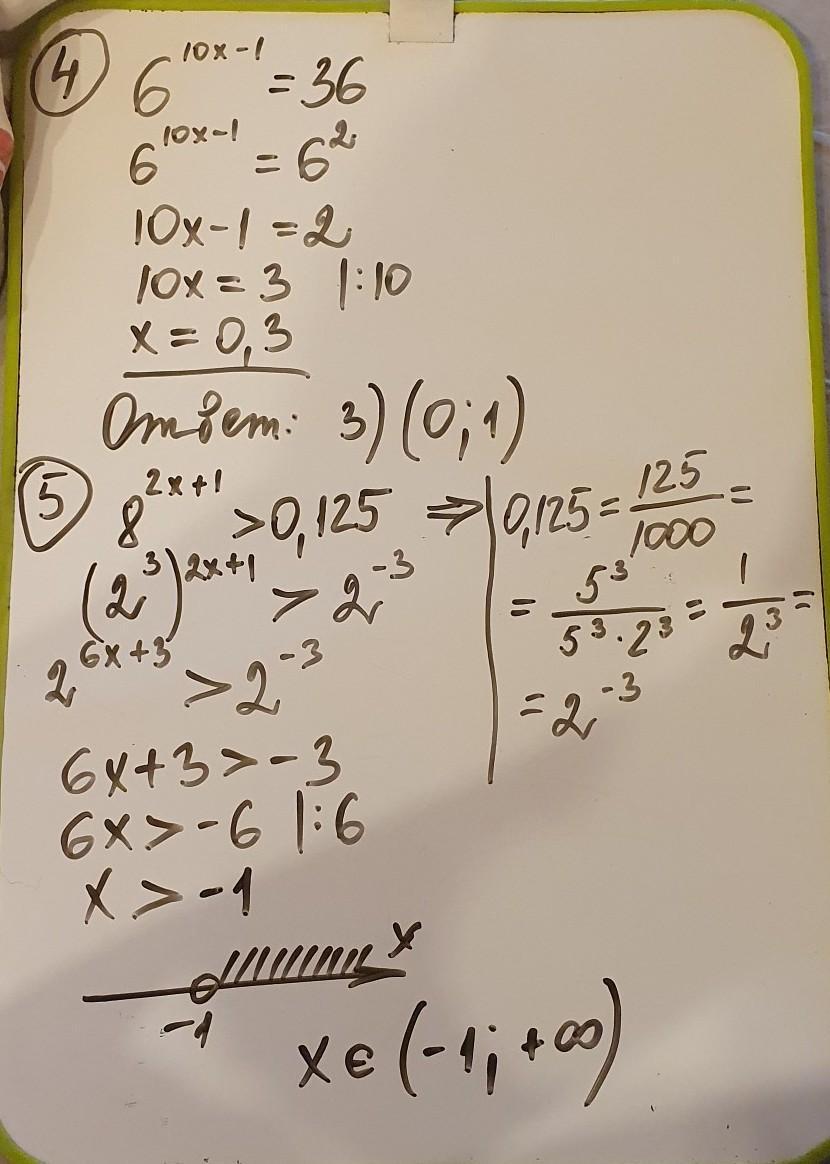 ④ 6^{10x-1} = 36
6^{10x-1} = 6^2
10x-1 = 2
10x = 3 |:10
x = 0,3
Ответ: 3) (0;1)
⑤ 8^{2x+1} > 0,125 ⇒
(2^3)^{2x+1} > 2^{-3}
2^{6x+3} > 2^{-3}
6x+3 > -3
6x > -6 |:6
x > -1
0,125 = \frac{125}{1000} =
= \frac{5^3}{5^3·2^3} = \frac{1}{2^3} =
= 2^{-3}
x
-1
x ∈ (-1; +∞)